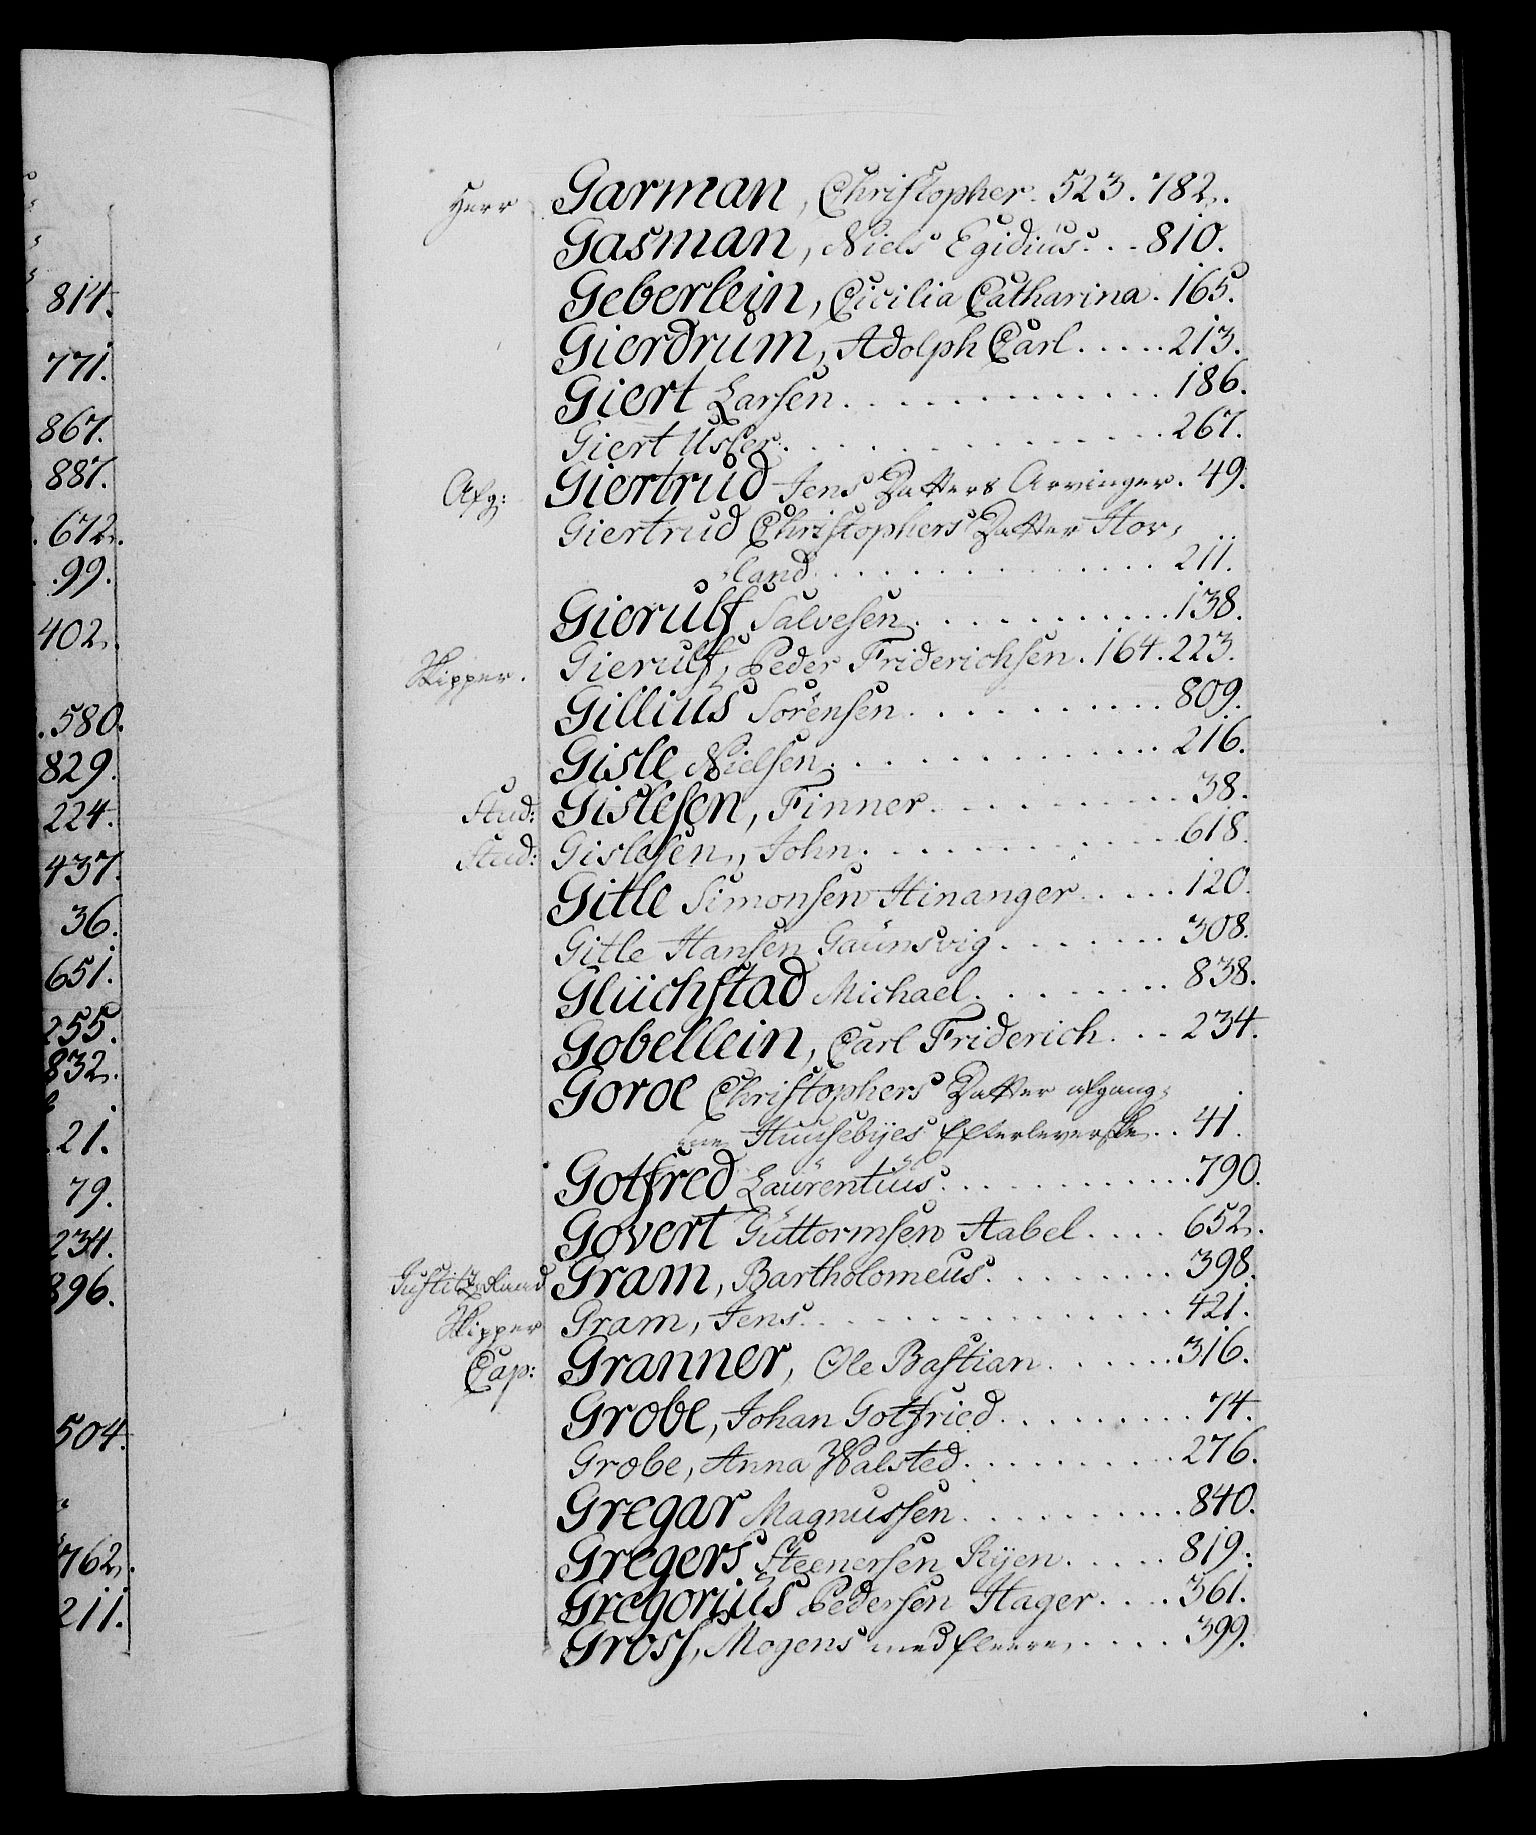 814.
771.
867.
887.
. 672.
. 99.
402.
. 580.
829.
224.
437.
36.
651.
255.
832.
. 21.
79.
234.
896.
504.
762.
211.
Herr Garman, Christopher. 523. 782.
Gasman, Niels Egidius. . . 810.
Geberlein, Cicilia Catharina. 165.
Gierdrum, Adolph Carl. . . . . 213.
Giert Larsen. . . . . . . . . . . . . 186.
Giert . . . . . . . . . . . . . . . 267.
Afg: Giertrud Jens Datters Arvinger. 49.
Giertrud Christophers Datter Hov-
-land. . . . . . . . . . . . . . . 211.
Gierulf Salvesen. . . . . . . . . . . 138.
Skipper. Gierulf, Peder Friderichsen. 164. 223.
Gillius Sörensen. . . . . . . . . . . 809.
Gisle Nielsen. . . . . . . . . . . . . 216.
Stud: Gislesen, Finner. . . . . . . . . . . 38.
Stud: Gislesen, John. . . . . . . . . . . . 618.
Gitle Simonsen Hinanger. . . . . 120.
Gitle Hansen Gaunsvig. . . . . . . 308.
Glückstad Michael. . . . . . . . . 838.
Gobellein, Carl Friderich. . . 234.
Goroe Christophers Datter afgang-
-ne Huusebÿes Efterleverske. . 41.
Gotfred Laurentius. . . . . . . . . . . 790.
Govert Guttormsen Aabel. . . . 652.
Justitz Raad Gram, Bartholomeus. . . . . . . . 398.
Skipper Gram, Jens. . . . . . . . . . . . . . . 421.
Cap: Granner, Ole Bastian. . . . . . . 316.
Grobe, Johan Gotfried. . . . . . . . . 74.
Grobe, Anna Walsted. . . . . . . . . . 276.
Gregar Magnussen. . . . . . . . . . . 840.
Gregers Steenersen Rÿen. . . . . 819.
Gregorius Pedersen Hager. . . . 361.
Gross, Mogens med fleere. . . . . 399.